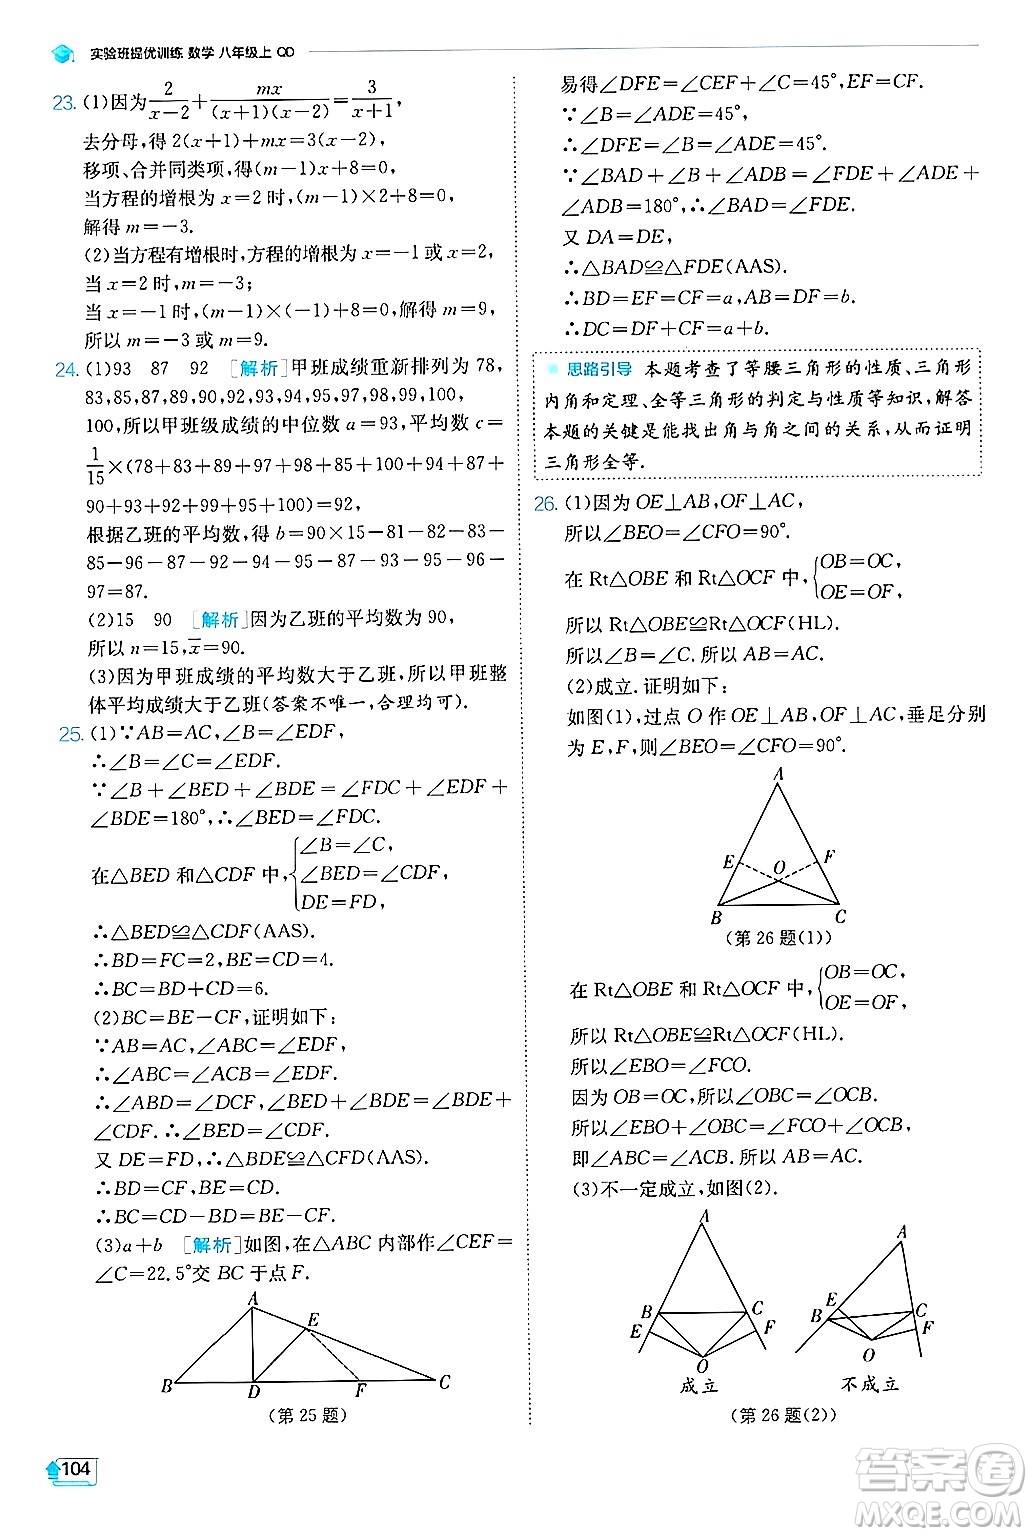 实验班提优训练 数学 八年级上 QD
23. (1)因为2/(x-2)+mx/((x+1)(x-2))=3/(x+1),
去分母,得 2(x+1)+mx=3(x-2),
移项、合并同类项,得(m-1)x+8=0,
当方程的增根为 x=2 时,(m-1)×2+8=0,
解得 m=-3.
(2)当方程有增根时,方程的增根为 x=-1 或 x=2,
当 x=2 时,m=-3;
当 x=-1 时,(m-1)×(-1)+8=0,解得 m=9,
所以 m=-3 或 m=9.
24. (1)93 87 92 [解析]甲班成绩重新排列为 78,
83,85,87,89,90,92,93,94,95,97,98,99,100,
100,所以甲班级成绩的中位数 a=93,平均数 c=
1/15×(78+83+85+87+89+90+92+93+94+
90+93+92+95+95+100)=92,
根据乙班的平均数,得 b=90×15-79-80-83-
85-85-96-90-89-92-93-95-90-96-
97=87.
(2)15 90 [解析]因为乙班的平均数为 90,
所以 n=15,x̄=90.
(3)因为甲班成绩的平均数大于乙班,所以甲班整
体平均成绩大于乙班(答案不唯一,合理均可).
25. (1)∵AB=AC,∠B=∠EDF,
∴∠B=∠C=∠EDF.
∵∠B+∠BED+∠BDE=∠FDC+∠EDF+
∠BDE=180°,∴∠BED=∠FDC.
在△BED 和△CDF 中,{∠B=∠C, ∠BED=∠CDF, DE=FD,
∴△BED≌△CDF(AAS).
∴BD=FC=2,BE=CD=4.
∴BC=BD+CD=6.
(2)BC=BE-CF,证明如下:
∵AB=AC,∠ABC=∠EDF,
∴∠ABC=∠ACB=∠EDF.
∴∠ABD=∠DCF,∠BED+∠BDE=∠BDE+
∠CDF.∴∠BED=∠CDF.
又 DE=FD,∴△BDE≌△CFD(AAS).
∴BD=CF,BE=CD.
∴BC=CD-BD=BE-CF.
(3)a+b [解析]如图,在△ABC 内部作∠CEF=
∠C=22.5°交 BC 于点 F.
A
E
B
D
F
C
(第 25 题)
104
易得∠DFE=∠CEF+∠C=45°,
∵∠B=∠ADE=45°,
∴∠DFE=∠B=∠ADE=45°.
∵∠BAD+∠B+∠ADB=∠FDE+∠ADE+
∠ADB=180°,∴∠BAD=∠FDE.
又 DA=DE,
∴△BAD≌△FDE(AAS).
∴BD=EF=CF=a,AB=DF=b.
∴DC=DF+CF=a+b.
思路引导 本题考查了等腰三角形的性质、三角形
内角和定理、全等三角形的判定与性质等知识,解答
本题的关键是能找出角与角之间的关系,从而证明
三角形全等.
26. (1)因为 OE⊥AB,OF⊥AC,
所以∠BEO=∠CFO=90°.
在 Rt△OBE 和 Rt△OCF 中,{OB=OC, OE=OF,
所以 Rt△OBE≌Rt△OCF(HL).
所以∠B=∠C.所以 AB=AC.
(2)成立.证明如下:
如图(1),过点 O 作 OE⊥AB,OF⊥AC,垂足分别
为 E,F,则∠BEO=∠CFO=90°.
A
E
F
O
B
C
(第 26 题(1))
在 Rt△OBE 和 Rt△OCF 中,{OB=OC, OE=OF,
所以 Rt△OBE≌Rt△OCF(HL).
所以∠EBO=∠FCO.
因为 OB=OC,所以∠OBC=∠OCB.
所以∠EBO+∠OBC=∠FCO+∠OCB,
即∠ABC=∠ACB.所以 AB=AC.
(3)不一定成立,如图(2).
A
B
C
E
F
O
成立
A
E
B
C
F
O
不成立
(第 26 题(2))
答案圈
MXQE.COM